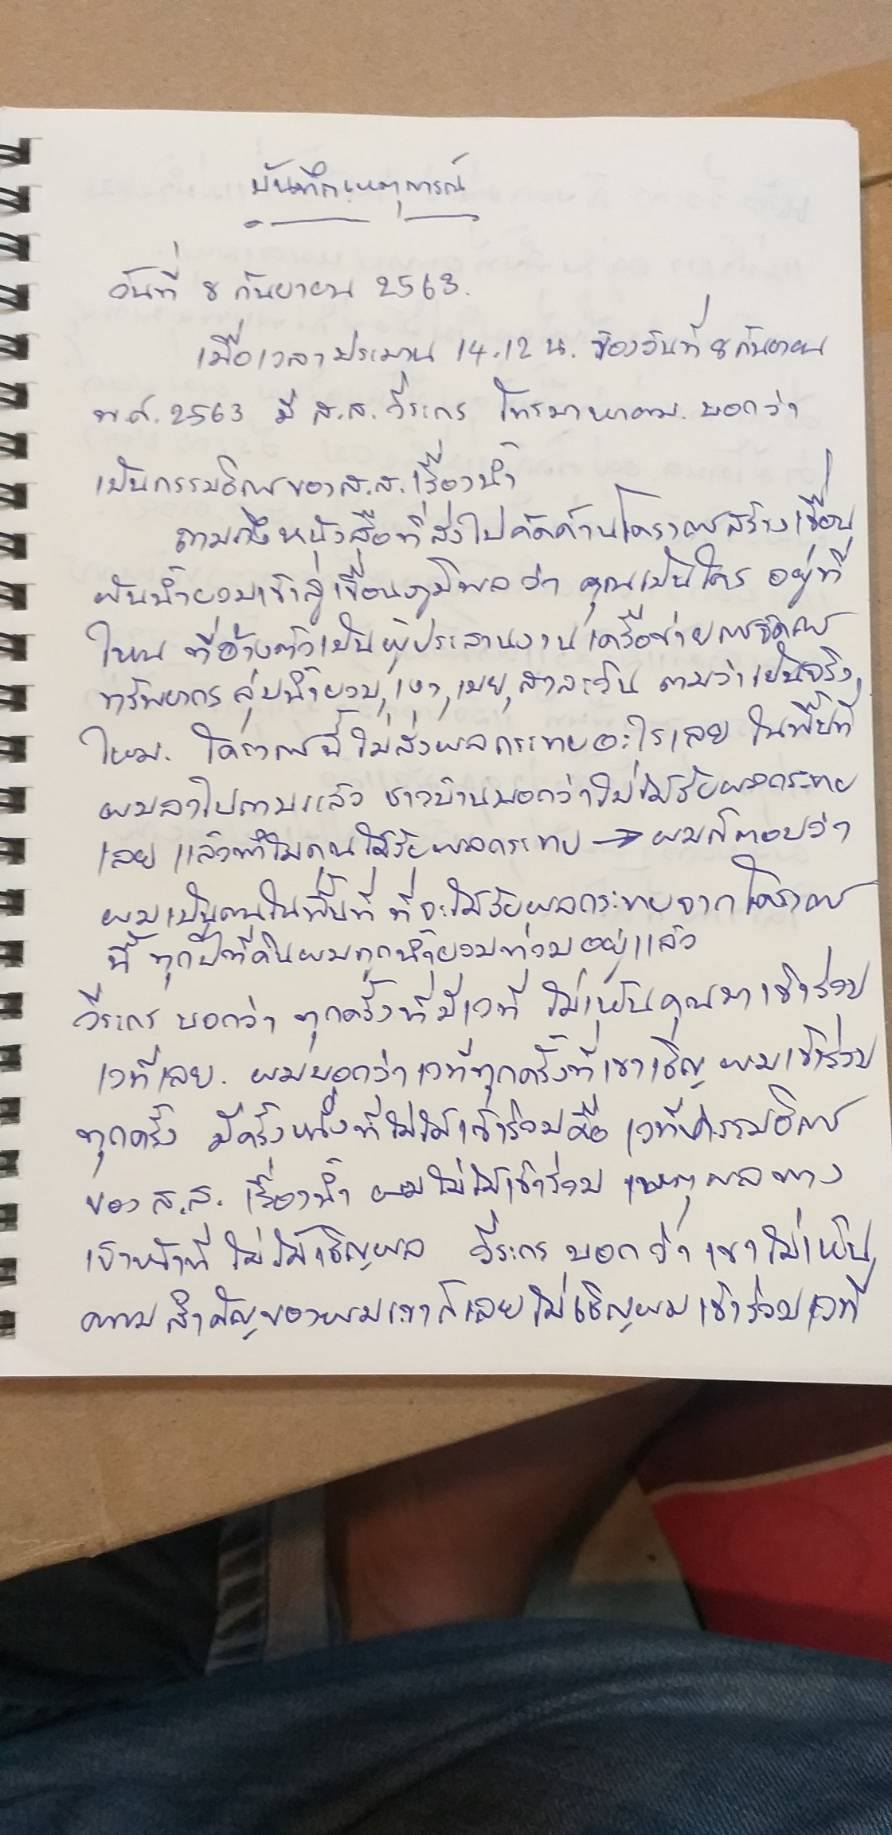 บันทึกเหตุการณ์
วันที่ 8 กันยายน 2563.
เมื่อเวลาประมาณ 14.12 น. ของวันที่ 8 กันยายน
พ.ศ. 2563 มี ส.ส. วีระกร โทรมาหาผม. บอกว่า
เป็นกรรมธิการของ ส.ส. เรื่องน้ำ
ถามถึงหนังสือที่ส่งไปคัดค้านโครงการสร้างเขื่อน
ผันน้ำยวมเข้าสู่เขื่อนภูมิพลว่า คุณเป็นใคร อยู่ที่
ใหน ที่อ้างตัวเป็นผู้ประสานงานเครือข่ายการจัดการ
ทรัพยากร ลุ่มน้ำยวม, เงา, เมย, สาละวิน ถามว่าเป็นจริง
ใหม. โครงการนี้ไม่ส่งผลกระทบอะไรเลย ในพื้นที่
ผมลงไปถามแล้ว ชาวบ้านบอกว่าไม่ได้รับผลกระทบ
เลย แล้วทำไมคุณได้รับผลกระทบ → ผมก็ตอบว่า
ผมเป็นคนในพื้นที่ ที่จะได้รับผลกระทบจากโครงการ
นี้ ทุกปีที่ดินผมถูกน้ำยวมท่วมอยู่แล้ว
วีระกร บอกว่า ทุกครั้งที่มีเวที ไม่เห็นคุณมาเข้าร่วม
เวทีเลย. ผมบอกว่าเวทีทุกครั้งที่เขาเชิญ ผมเข้าร่วม
ทุกครั้ง มีครั้งหนึ่งที่ไม่ได้เข้าร่วมคือ เวทีกรรมธิการ
ของ ส.ส. เรื่องน้ำ ผมไม่ได้เข้าร่วม เหตุผลทาง
เจ้าหน้าที่ไม่ได้เชิญผม วีระกร บอกว่า เขาไม่เห็น
ความสำคัญของผมเขาก็เลยไม่เชิญผมเข้าร่วมเวที